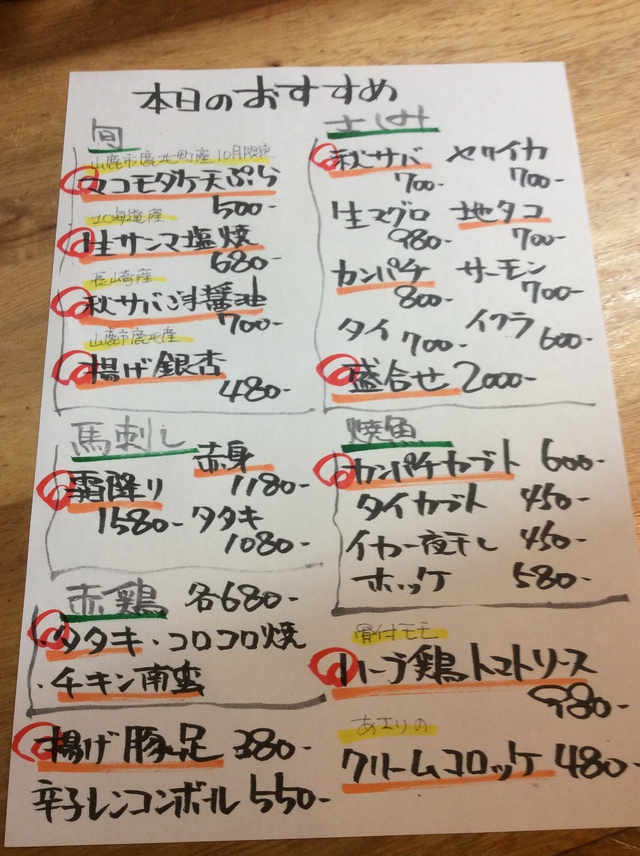 本日のおすすめ
旬
山鹿市鹿北町産 10月限定
マコモダケ天ぷら
500-
北海道産
生サンマ塩焼
680-
長崎産
秋サバごま醤油
700-
山鹿市鹿北産
揚げ銀杏
480-
さしみ
秋サバ 700-
ヤリイカ 700-
生マグロ 980-
地タコ 700-
カンパチ 800-
サーモン 700-
タイ 700-
イクラ 600-
盛合せ 2000-
馬刺し
赤身 1180-
霜降り 1580-
タタキ 1080-
焼魚
カンパチカブト 600-
タイカブト 450-
イカ一夜干し 450-
ホッケ 580-
赤鶏 各680-
タタキ・コロコロ焼
・チキン南蛮
骨付モモ
ハーブ鶏トマトソース
980-
揚げ豚足 380-
辛子レンコンボール 550-
あさりの
クリームコロッケ 480-